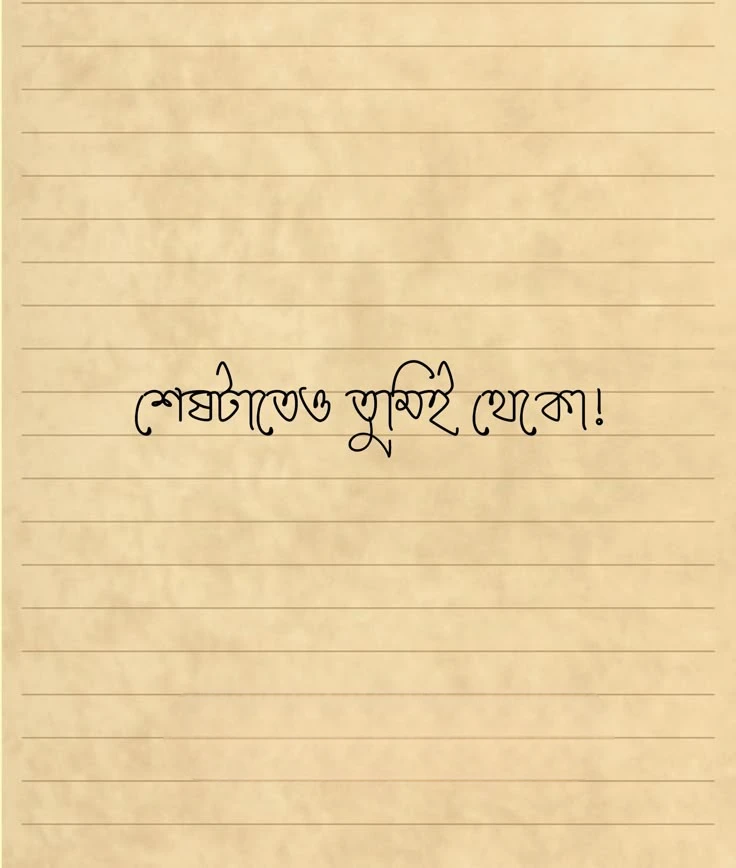 শেষটাতেও তুমিই থেকো!